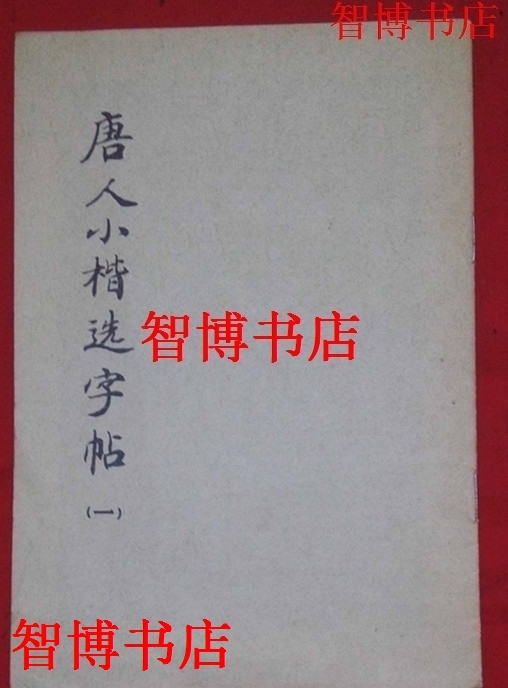 智博书店
唐人小楷选字帖(一)
智博书店
智博书店